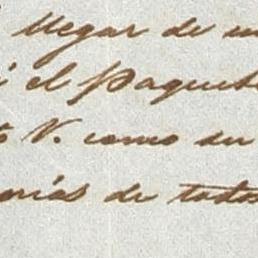 llegar de
el Paquete
V. como su
de todos